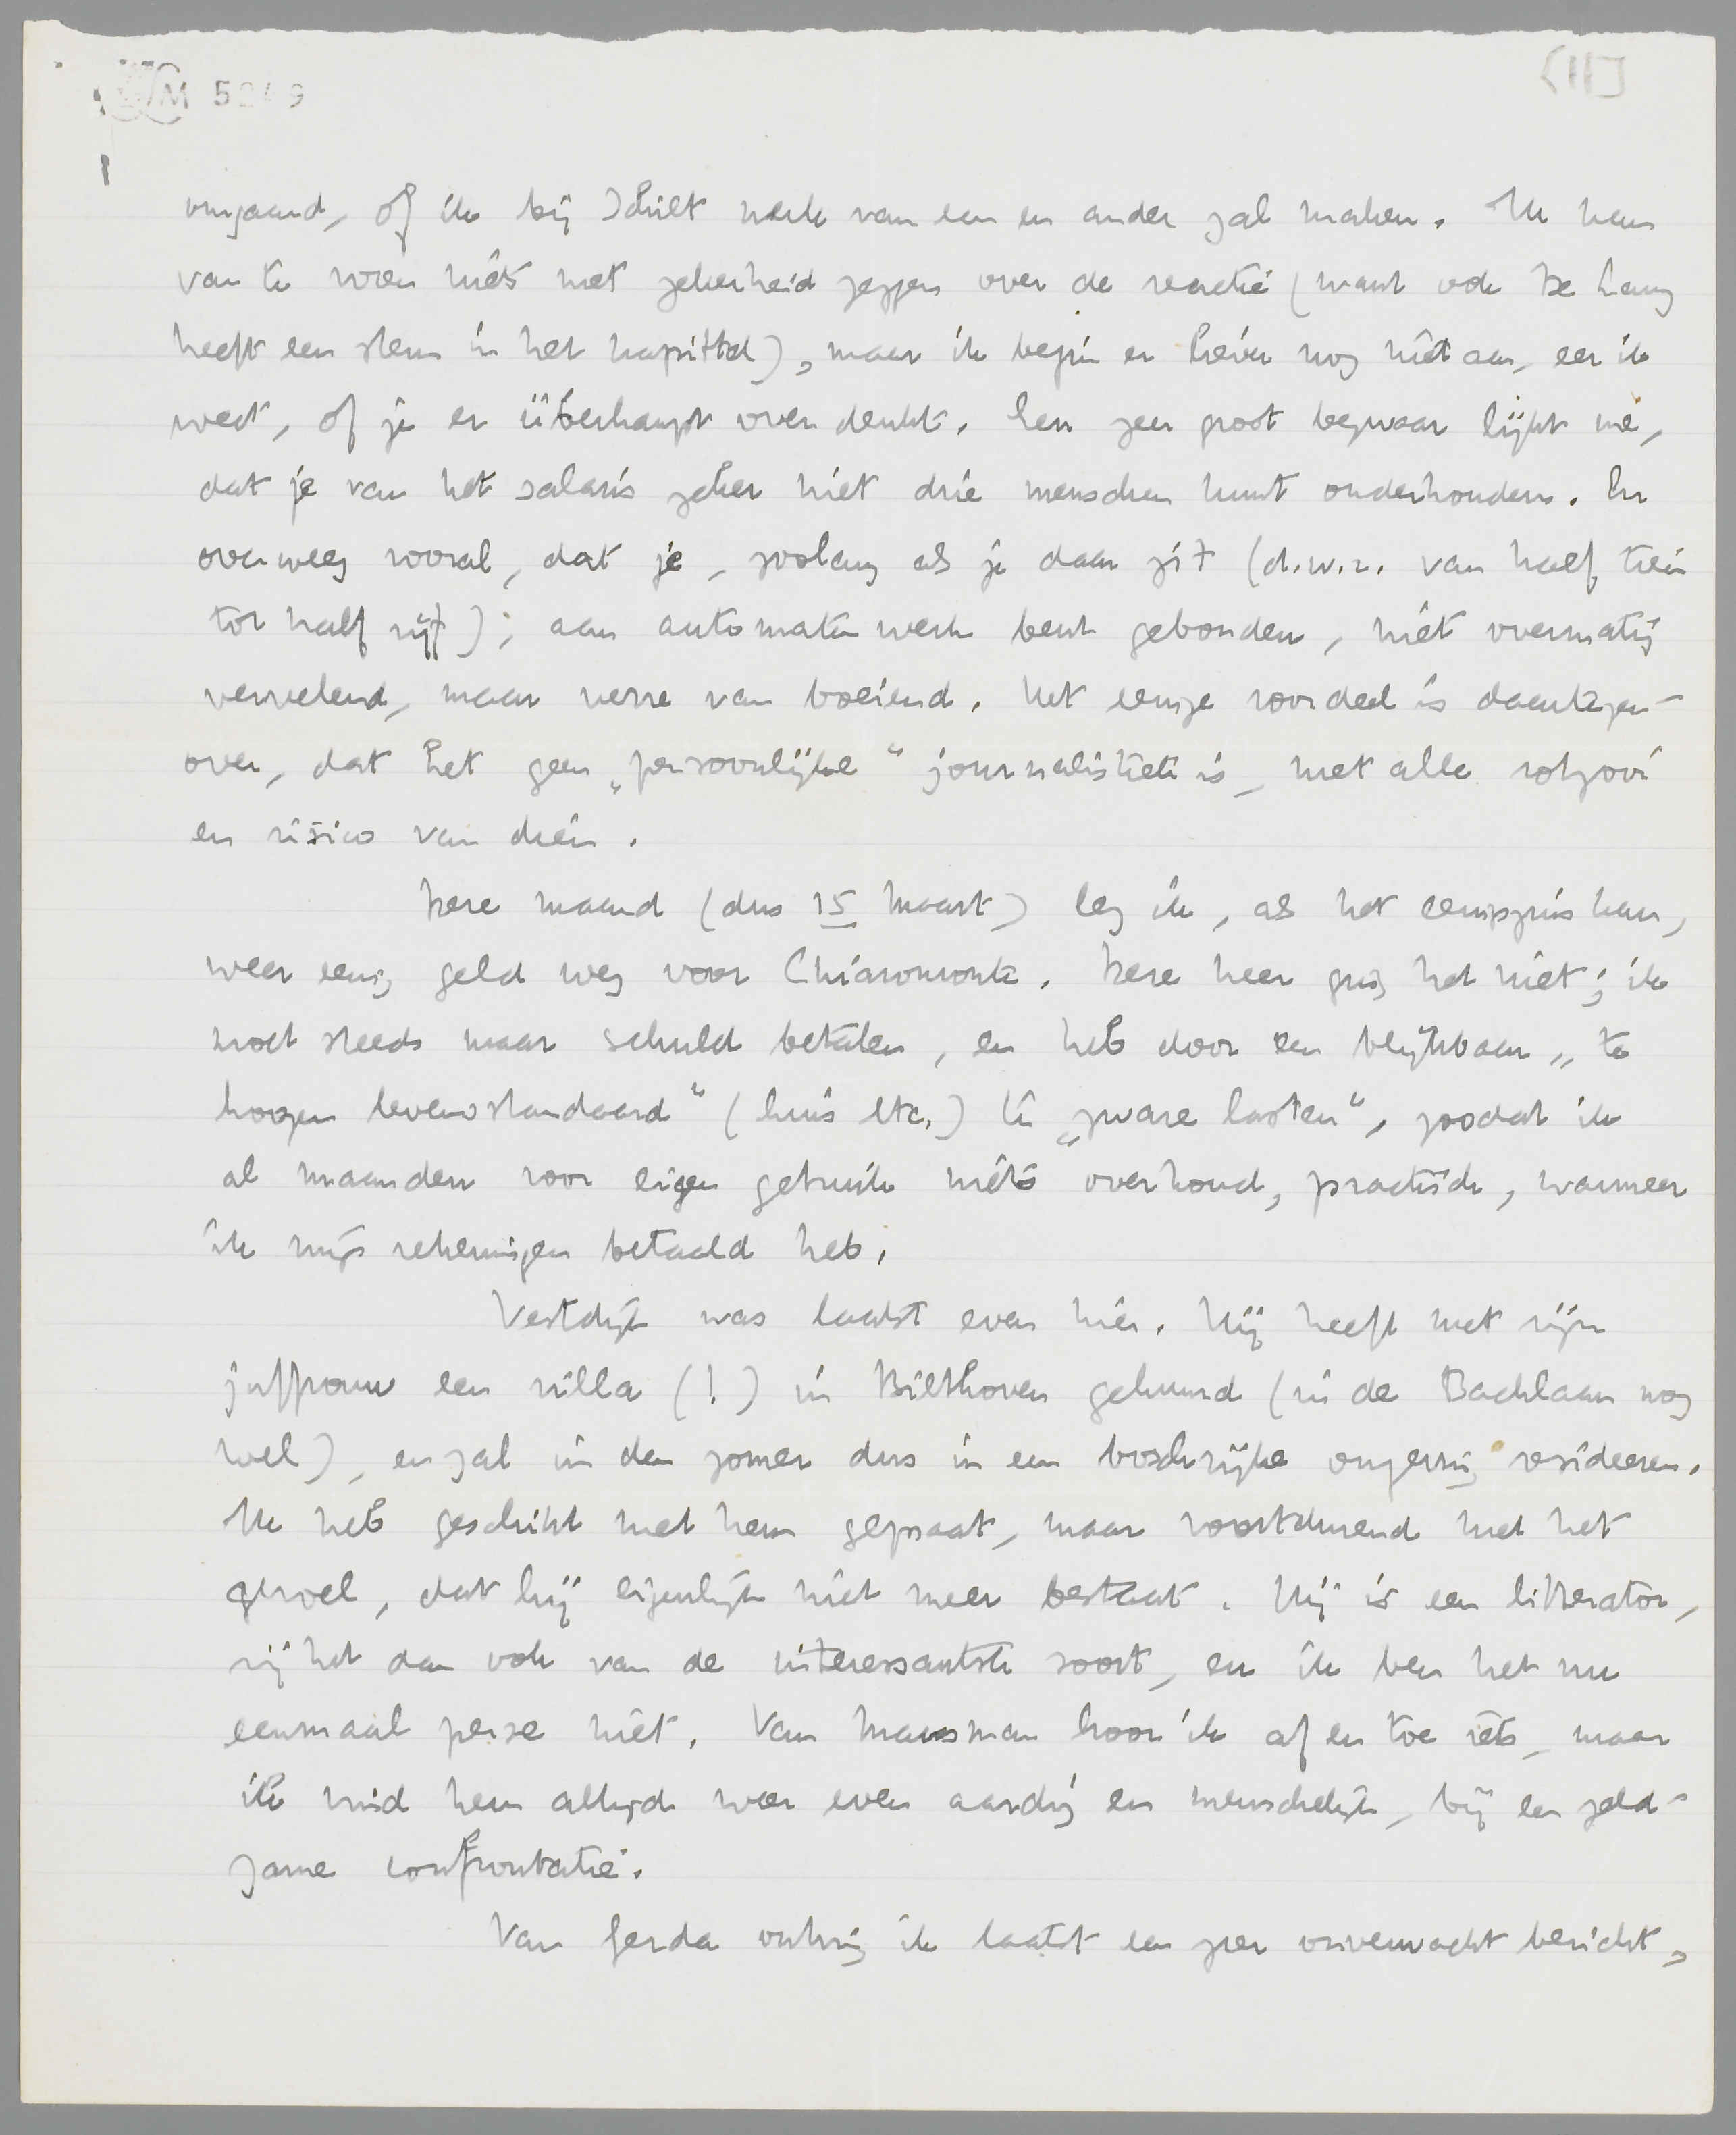 M 5249
[II]
omgaand, of ik bij Schilt werk van een en ander zal maken. Ik kan
van te voren niets met zekerheid zeggen over de reactie (want ook de Lang
heeft een stem in het kapittel), maar ik begin er liever nog niet aan, eer ik
weet, of je er überhaupt over denkt. Een zeer groot bezwaar lijkt me,
dat je van het salaris zeker niet drie menschen kunt onderhouden. En
overweeg vooral, dat je, zoolang als je daar zit (d.w.z. van half tien
tot half vijf), aan automatenwerk bent gebonden, niet overmatig
vervelend, maar verre van boeiend. Het eenige voordeel is daartegen-
over, dat het geen „persoonlijke" journalistiek is, met alle rotzooi
en risico van dien.
Deze maand (dus 15 Maart) leg ik, als het eenigszins kan,
weer eenig geld weg voor Chiaromonte. Deze keer ging het niet; ik
moet steeds maar schuld betalen, en heb door een blijkbaar „te
hoogen levensstandaard" (huis etc.) te „zware lasten", zoodat ik
al maanden voor eigen gebruik niets overhoud, practisch, wanneer
ik mijn rekeningen betaald heb.
Vestdijk was laatst even hier. Hij heeft met zijn
juffrouw een villa (!) in Bilthoven gehuurd (in de Bachlaan nog
wel), en zal in den zomer dus in een boschrijke omgeving resideeren.
Ik heb geschikt met hem gepraat, maar voortdurend met het
gevoel, dat hij eigenlijk niet meer bestaat. Hij is een litterator,
zij het dan ook van de interessantste soort, en ik ben het nu
eenmaal per se niet. Van Marsman hoor ik af en toe iets, maar
ik vind hem altijd weer even aardig en menschelijk, bij een zeld-
zame confrontatie.
Van Gerda ontving ik laatst een zeer onverwacht bericht,